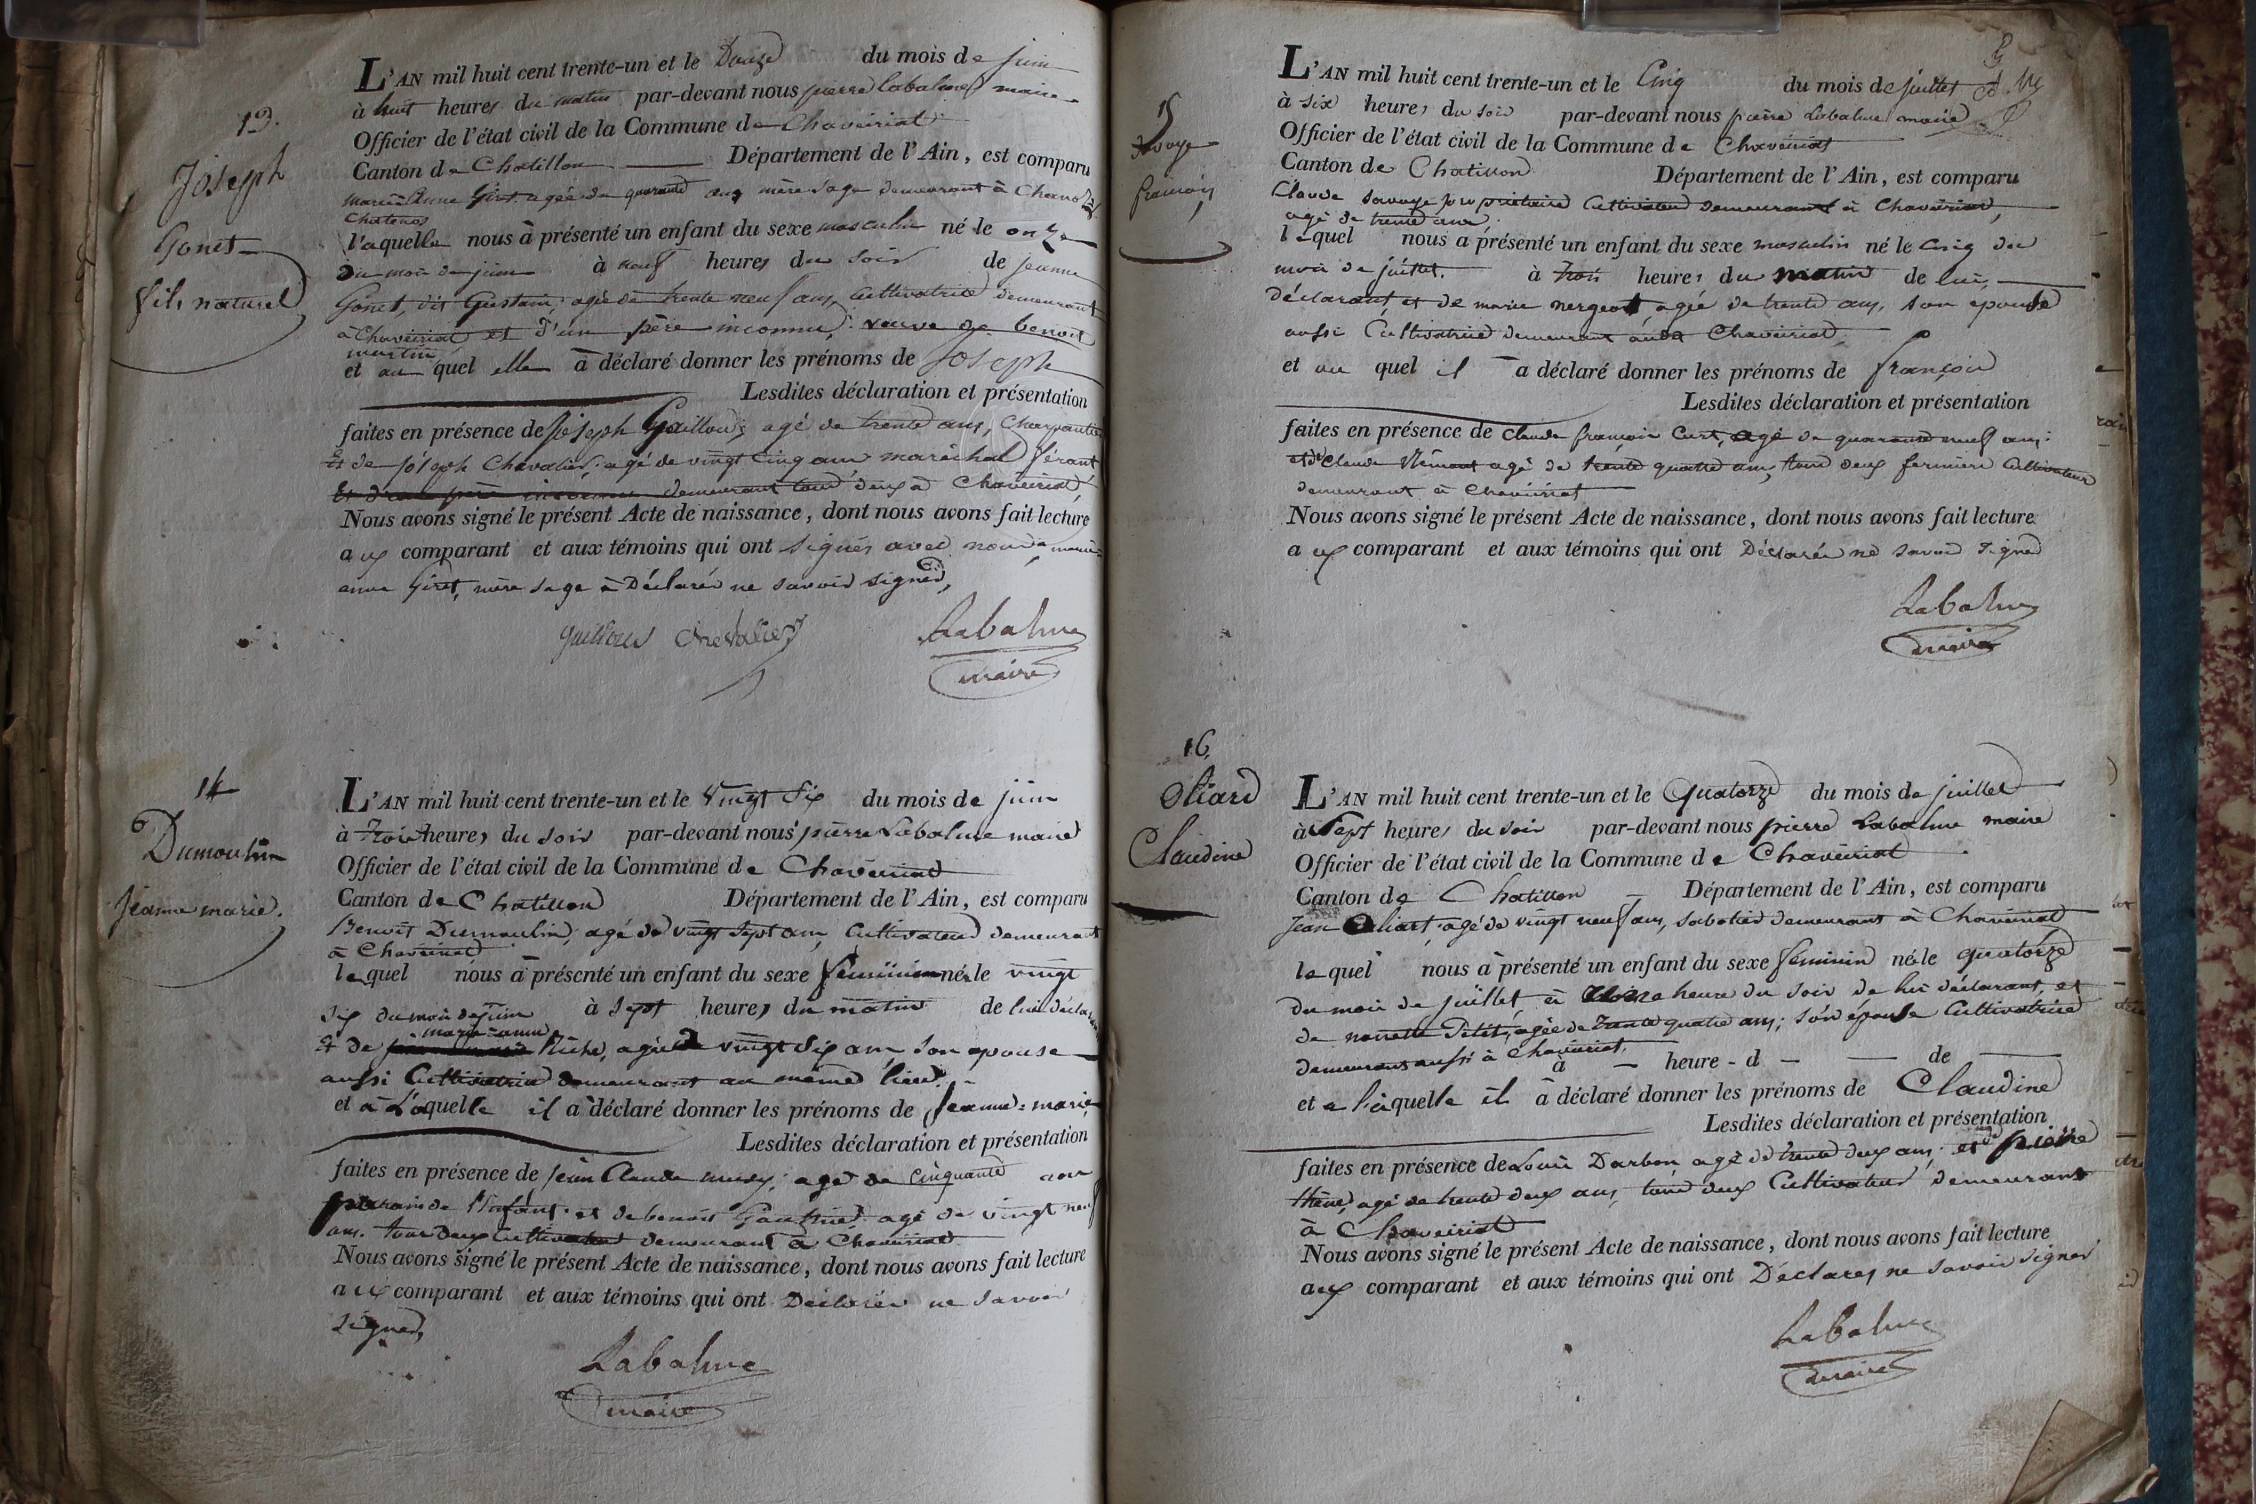 13.
Joseph
Gonet
fils naturel
L'AN mil huit cent trente-un et le Douze du mois de juin
à huit heures du matin par-devant nous pierre Labalme maire
Officier de l'état civil de la Commune de Chaveiriat
Canton de Chatillon Département de l'Ain, est comparu
marie Anne Giret agée de quarante ans mère sage demeurant à
Chatenay
laquelle nous à présenté un enfant du sexe masculin né le onze
du mois de juin à neuf heures du soir de jeanne
Gonet, dit Gustain, agée de trente neuf ans, Cultivatrice demeurant
à Chaveiriat et d'un père inconnu, veuve de benoit
martin
et au quel elle à déclaré donner les prénoms de Joseph
Lesdites déclaration et présentation
faites en présence de joseph Guillon, agé de trente ans, Charpentier
Et de joseph Chevalier, agé de vingt cinq ans maréchal férant
demeurant tous deux à Chaveiriat
Nous avons signé le présent Acte de naissance, dont nous avons fait lecture
aux comparant et aux témoins qui ont signés avec nous, marie
anne Giret, mère sage à Déclarée ne savoir signer,
guillon chevalier Labalme
maire
14
Dumoulin
Jeanne marie.
L'AN mil huit cent trente-un et le Vingt Six du mois de juin
à Trois heures du soir par-devant nous pierre Labalme maire
Officier de l'état civil de la Commune de Chaveiriat
Canton de Chatillon Département de l'Ain, est comparu
Benoit Dumoulin, agé de vingt sept ans, Cultivateur demeurant
à Chaveiriat
lequel nous à présenté un enfant du sexe feminin né le vingt
Six du mois de juin à sept heures du matin de lui déclarant
marie-anne
Et de Niché, agée de vingt Six ans, son epouse
aussi Cultivatrice demeurant au même lieu.
et à Laquelle il a déclaré donner les prénoms de Jeanne-marie
Lesdites déclaration et présentation
faites en présence de jean Claude agé de cinquante ans
parrain de l'enfant. et de benoit Gauthier agé de vingt neuf
ans. tous deux Cultivateur demeurant à Chaveiriat
Nous avons signé le présent Acte de naissance, dont nous avons fait lecture
aux comparant et aux témoins qui ont Déclarés ne savoir
signer,
Labalme
maire
15
Savoye
françois
L'AN mil huit cent trente-un et le Cinq du mois de juillet
à six heures du soir par-devant nous pierre Labalme maire
Officier de l'état civil de la Commune de Chaveiriat
Canton de Chatillon Département de l'Ain, est comparu
Claude Savoye propriétaire Cultivateur demeurant à Chaveiriat,
agé de trente ans,
lequel nous a présenté un enfant du sexe masculin né le Cinq du
mois de juillet. à trois heures du matin de lui,
déclarant, et de marie nergeot, agée de trente ans, son epouse
aussi Cultivatrice demeurant audit Chaveiriat,
et au quel il a déclaré donner les prénoms de françois
Lesdites déclaration et présentation
faites en présence de Claude françois Curt, agé de quarante neuf ans:
et de Claude agé de trente quatre ans, tous deux fermiers Cultivateur
demeurant à Chaveiriat
Nous avons signé le présent Acte de naissance, dont nous avons fait lecture
aux comparant et aux témoins qui ont Déclarés ne savoir signer
Labalme
maire
16,
Oliard
Claudine
L'AN mil huit cent trente-un et le Quatorze du mois de juillet
à Sept heures du soir par-devant nous pierre Labalme maire
Officier de l'état civil de la Commune de Chaveiriat
Canton de Chatillon Département de l'Ain, est comparu
Jean Oliart, agé de vingt neuf ans, sabotier demeurant à Chaveiriat
lequel nous à présenté un enfant du sexe feminin né le quatorze
du mois de juillet à heure du soir de lui déclarant, et
de Petit, agée de Trente quatre ans, son épouse Cultivatrice
demeurant aussi à Chaveiriat.
à heure d de
et a laquelle il à déclaré donner les prénoms de Claudine
Lesdites déclaration et présentation
faites en présence de Louis Darbon agé de trente deux ans, et de pierre
agé de trente deux ans, tous deux Cultivateur demeurant
à Chaveiriat
Nous avons signé le présent Acte de naissance, dont nous avons fait lecture
aux comparant et aux témoins qui ont Déclarés ne savoir signer
Labalme
maire